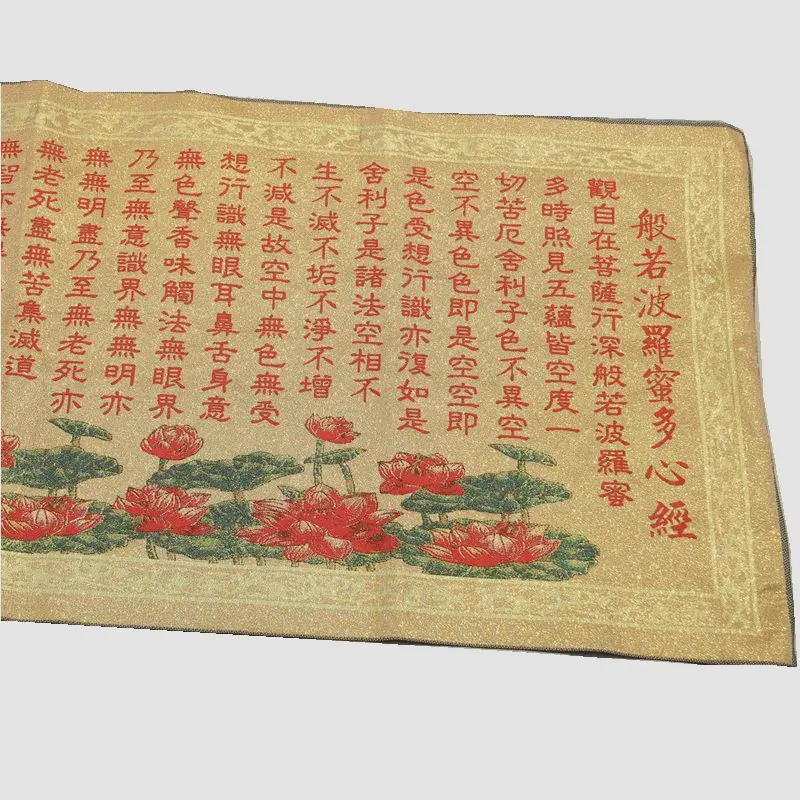 般若波羅蜜多心經
觀自在菩薩行深般若波羅蜜
多時照見五蘊皆空度一
切苦厄舍利子色不異空
空不異色色即是空空即
是色受想行識亦復如是
舍利子是諸法空相不
生不滅不垢不淨不增
不減是故空中無色無受
想行識無眼耳鼻舌身意
無色聲香味觸法無眼界
乃至無意識界無無明亦
無無明盡乃至無老死亦
無老死盡無苦集滅道
無智